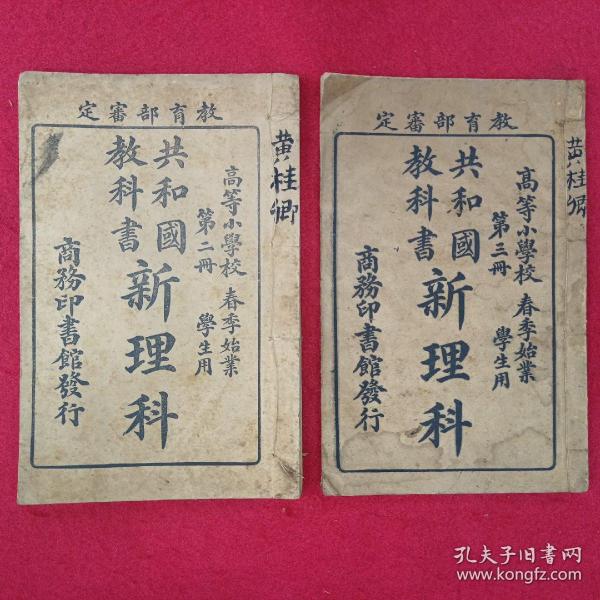 教育部審定
黄桂卿
高等小學校 春季始業
第二冊 學生用
共和國
教科書
新理科
商務印書館發行
教育部審定
黄桂卿
高等小學校 春季始業
第三冊 學生用
共和國
教科書
新理科
商務印書館發行
孔夫子旧书网
www.kongfz.com